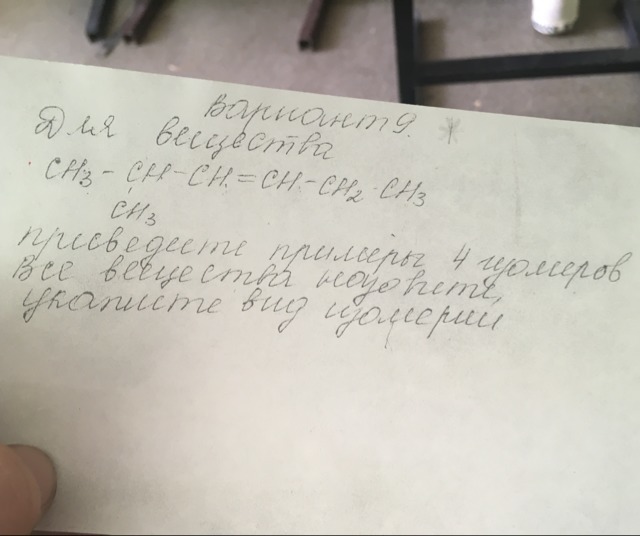 Вариант 9.
Для вещества
CH3 - CH - CH = CH - CH2 - CH3
CH3
приведите примеры 4 изомеров
Все вещества назовите,
укажите вид изомерии